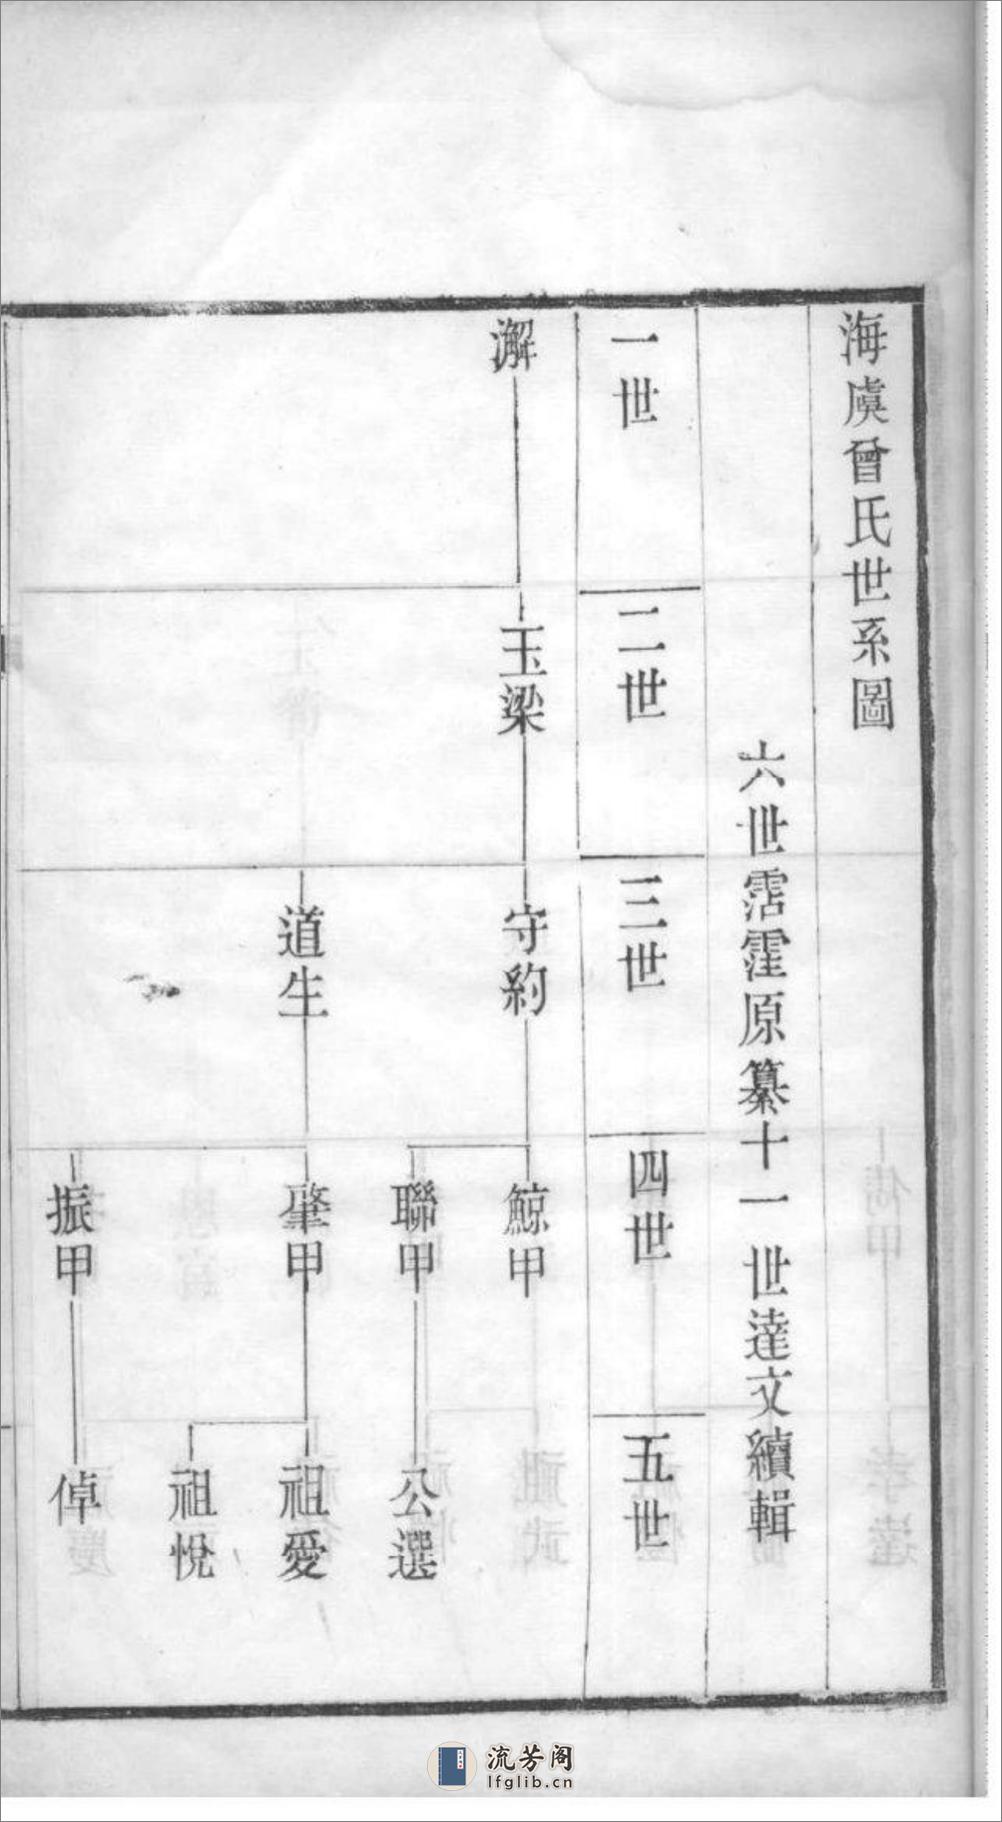 海虞曾氏世系圖
六世霑霔原纂十一世達文續輯
一世
二世
三世
四世
五世
澥
玉梁
守約
鯨甲
聯甲
公選
道生
肇甲
祖愛
祖悅
振甲
倬
流芳阁
lfglib.cn